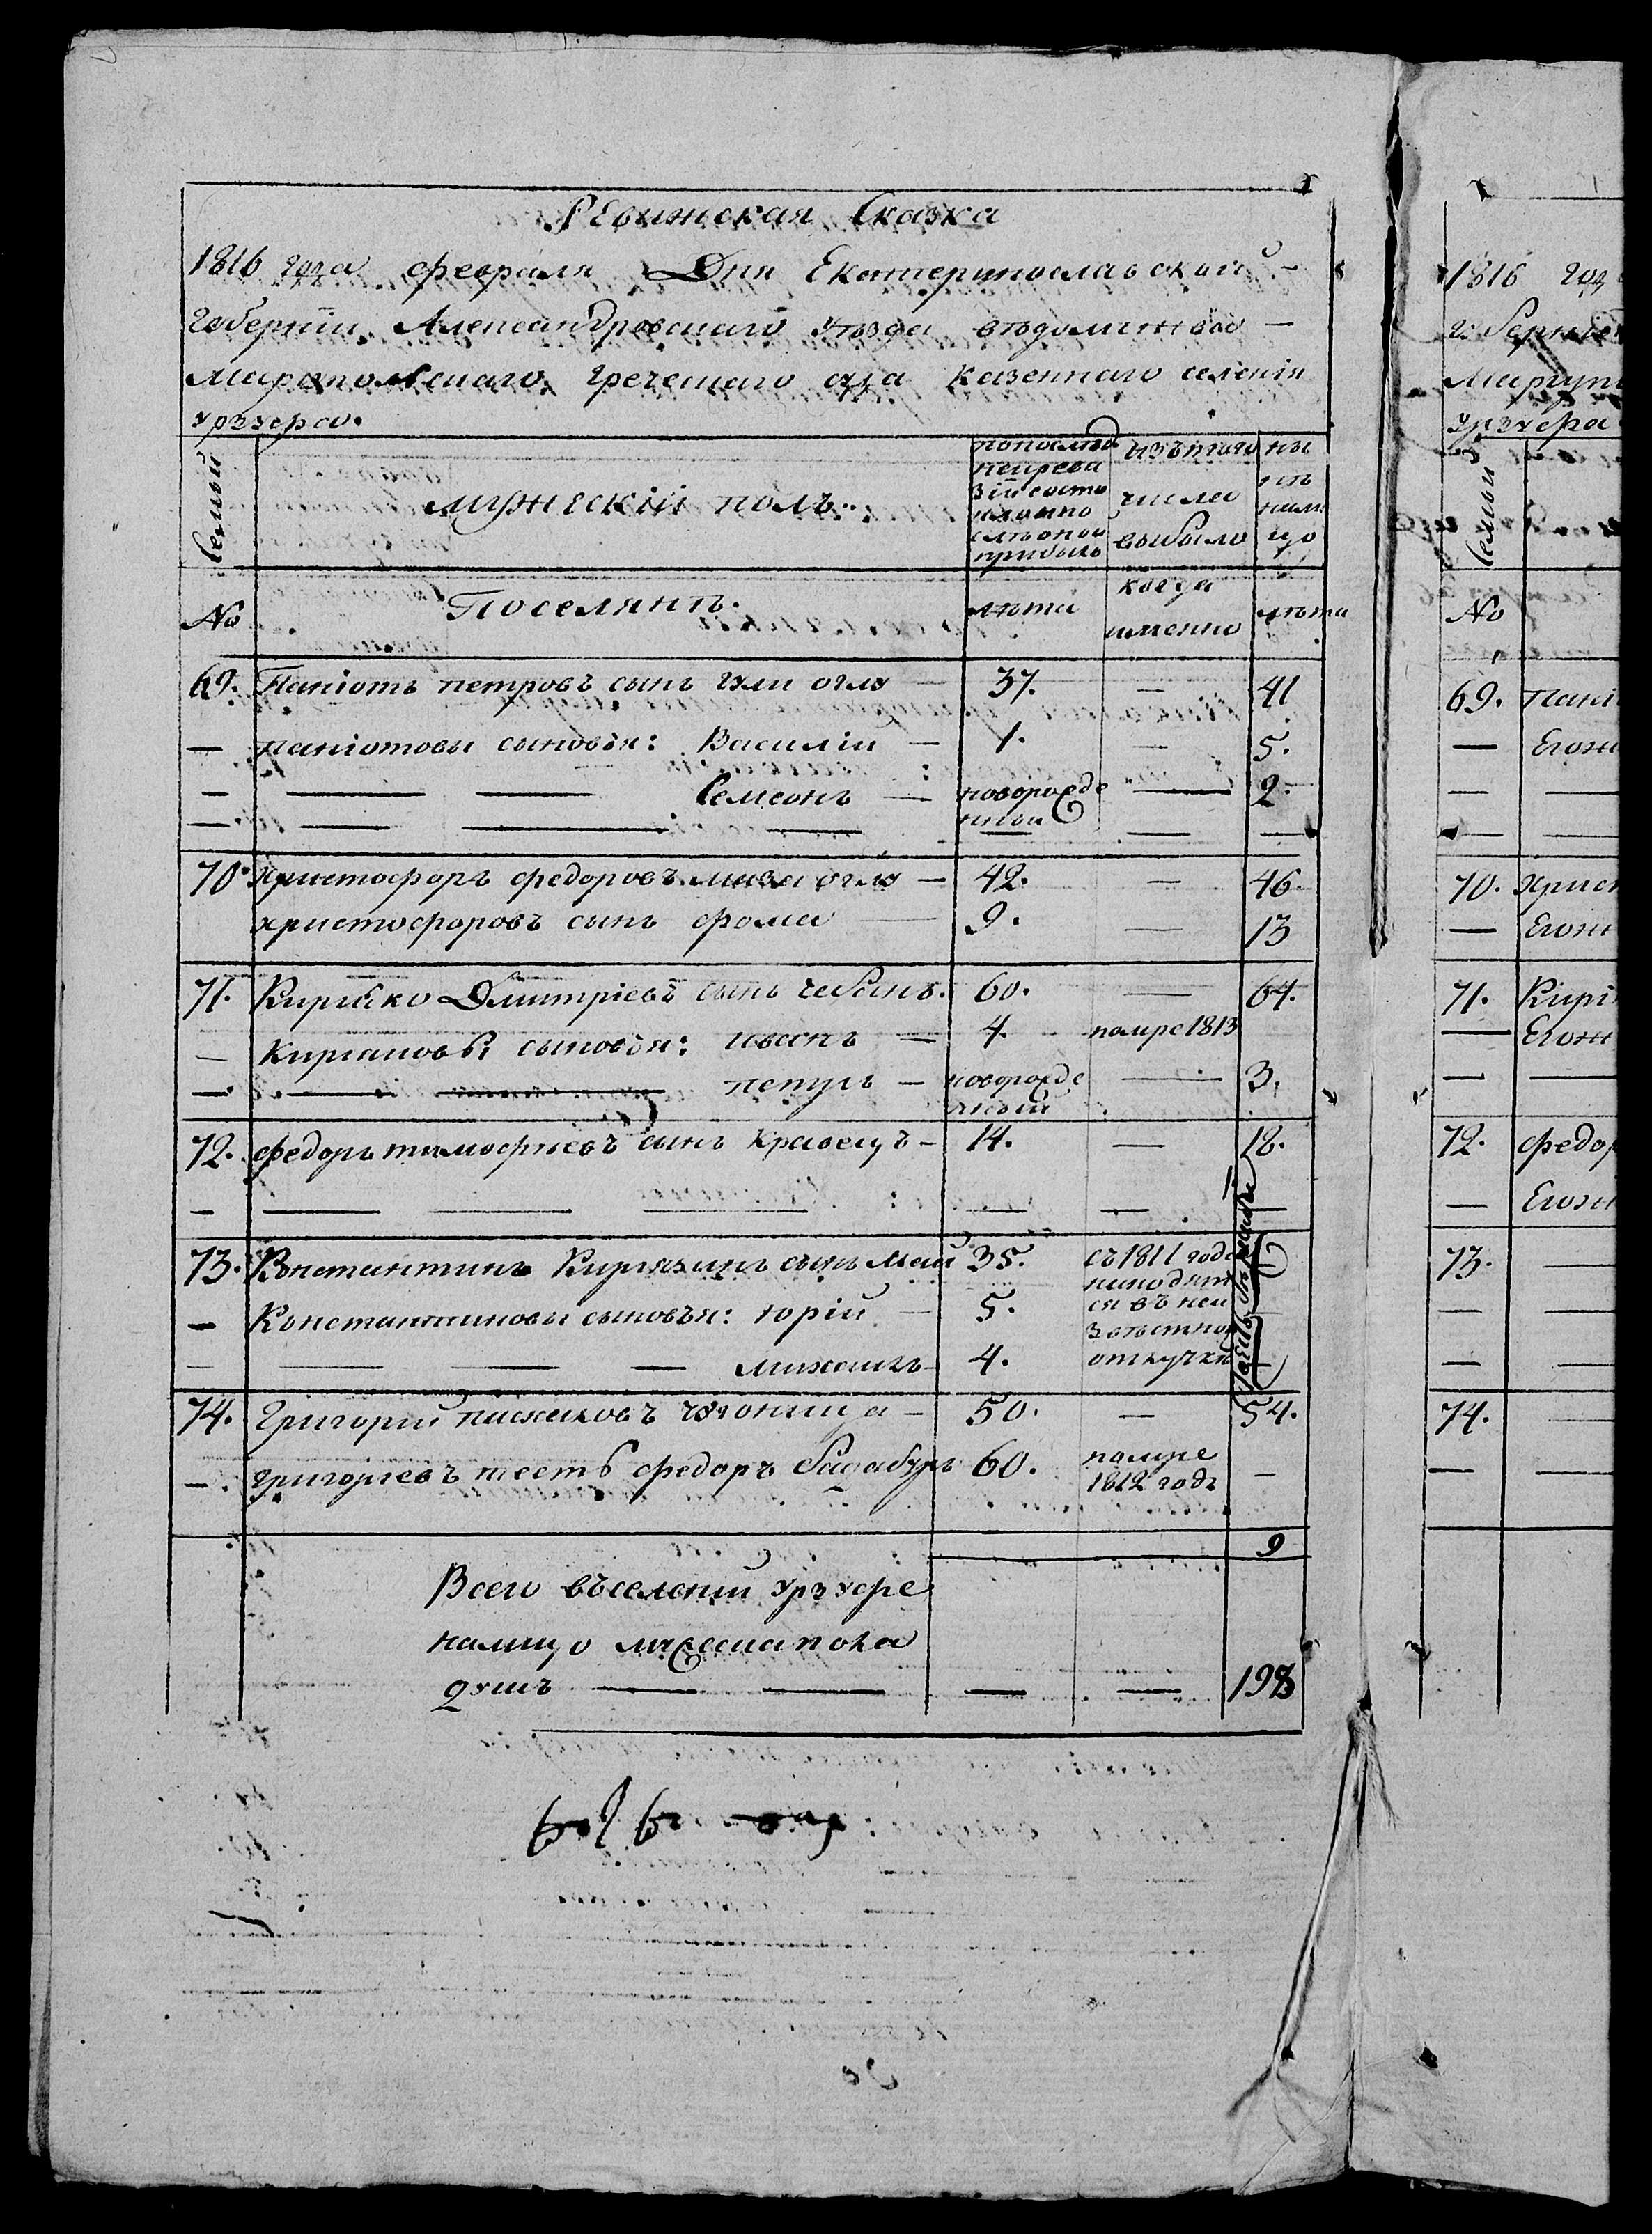 Ревижская Сказка
1816 года февраля Дня Екатеринославской
Губернии Александровскаго уезда ведомства
Мариупольскаго Греческаго суда Казеннаго селения
урзуфа.
Семьи
мужескій полъ.
по последней ревизіи состояло и после оной прибыло
изъ того числа выбыло
ныне на лицо
No
Поселянъ.
лета
когда именно
лета
69. Паніотъ петровъ сынъ гули оглу — 37. — 41
— паніотовы сыновья: Василіи — 1. — 5.
— — — Семсонъ — новорожденный — 2
— — — — — — —
70. Христофоръ федоровъ оглу — 42. — 46
христофоровъ сынъ фома — 9. — 13
71. Кирияко Дмитріевъ сынъ чебанъ. 60. — 64.
— Киріяковы сыновья: иванъ — 4. помре 1813
— — — — новорожденный — 3.
72. федоръ тимофіевъ сынъ Кравецъ — 14. — 18.
— — — — — — —
73. Констянтинъ Кириязинъ сынъ Май 35. съ 1811 года находятся въ неизвестной отлучке
— Констянтиновы сыновья: юрій — 5.
— — — — михаилъ — 4.
74. Григорій — 50. — 54.
— григоріевъ тесть федоръ 60. помре 1812 года —
9
Всего въ селеніи урзуфе
налицо мужеска пола
душъ — — — — 198
69.
—
—
—
1816 год
губерніи
Мариуп
урзуфа
Семьи
No
69. пані
— Егожи
— —
— —
70. Христ
— Егож
71. Киріи
— Егож
— —
72. федор
— Егож
73. —
— —
— —
74. —
— —